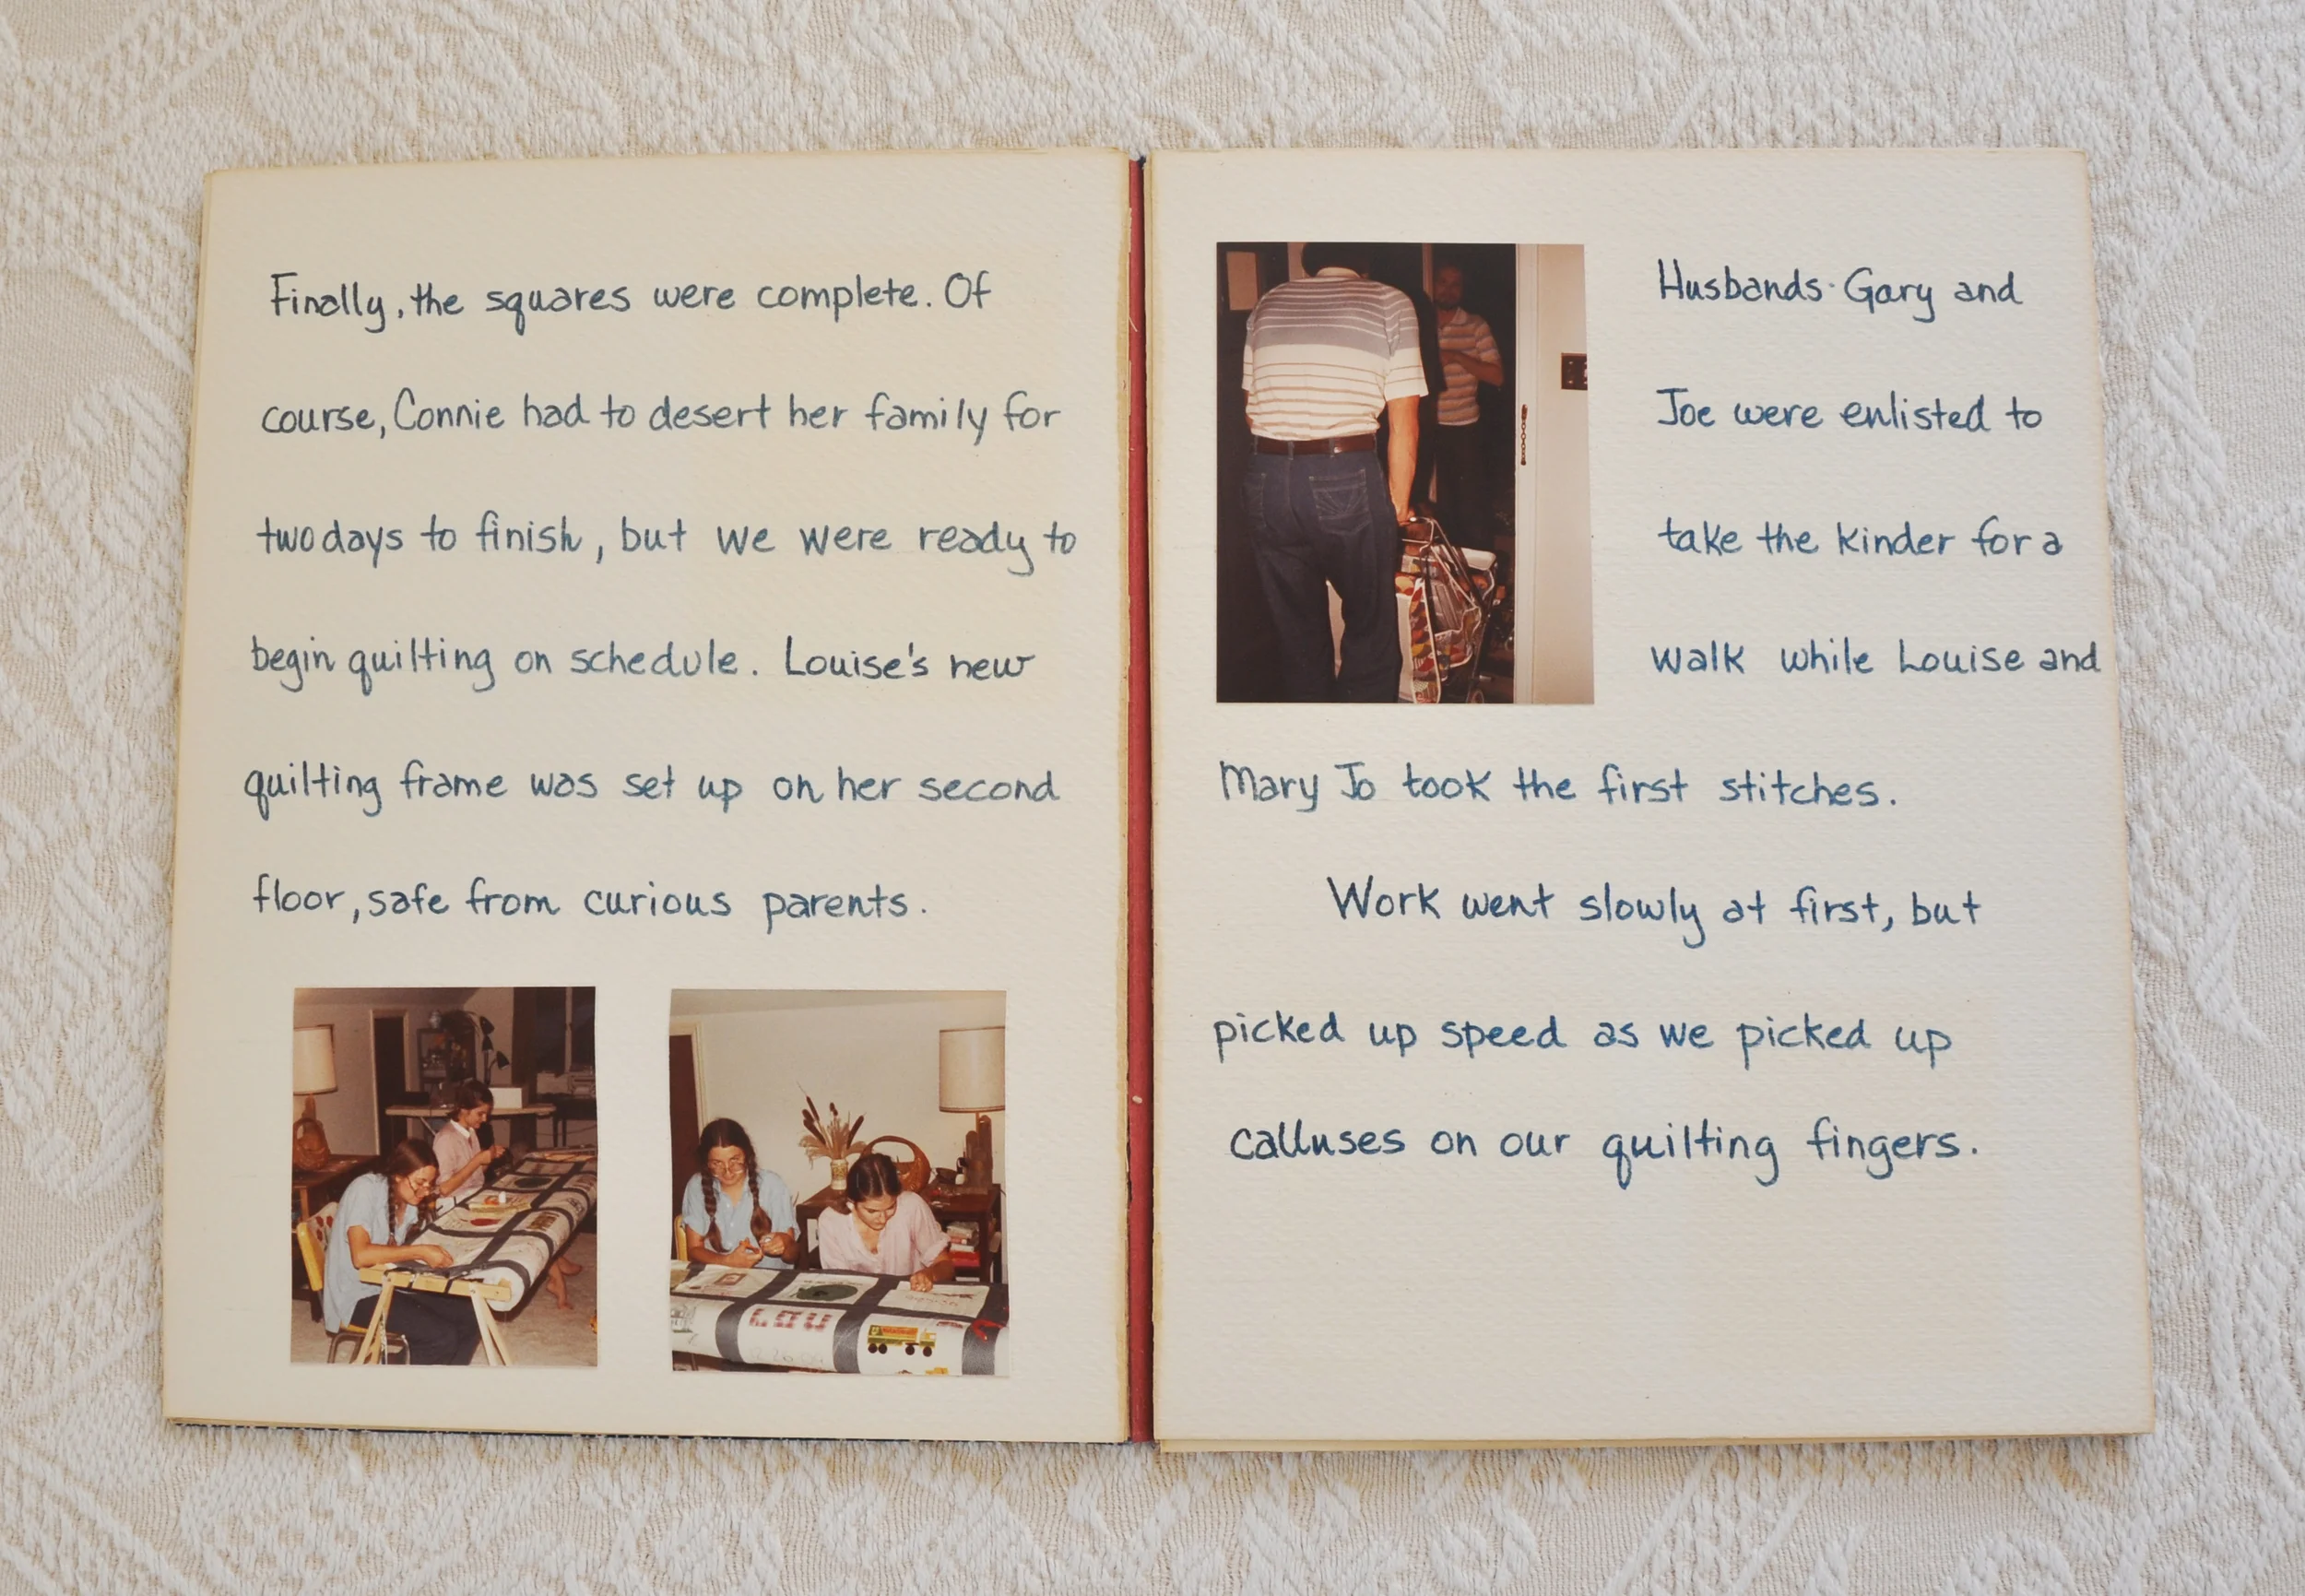 Finally, the squares were complete. Of
course, Connie had to desert her family for
two days to finish, but we were ready to
begin quilting on schedule. Louise's new
quilting frame was set up on her second
floor, safe from curious parents.
Husbands Gary and
Joe were enlisted to
take the kinder for a
walk while Louise and
Mary Jo took the first stitches.
Work went slowly at first, but
picked up speed as we picked up
calluses on our quilting fingers.